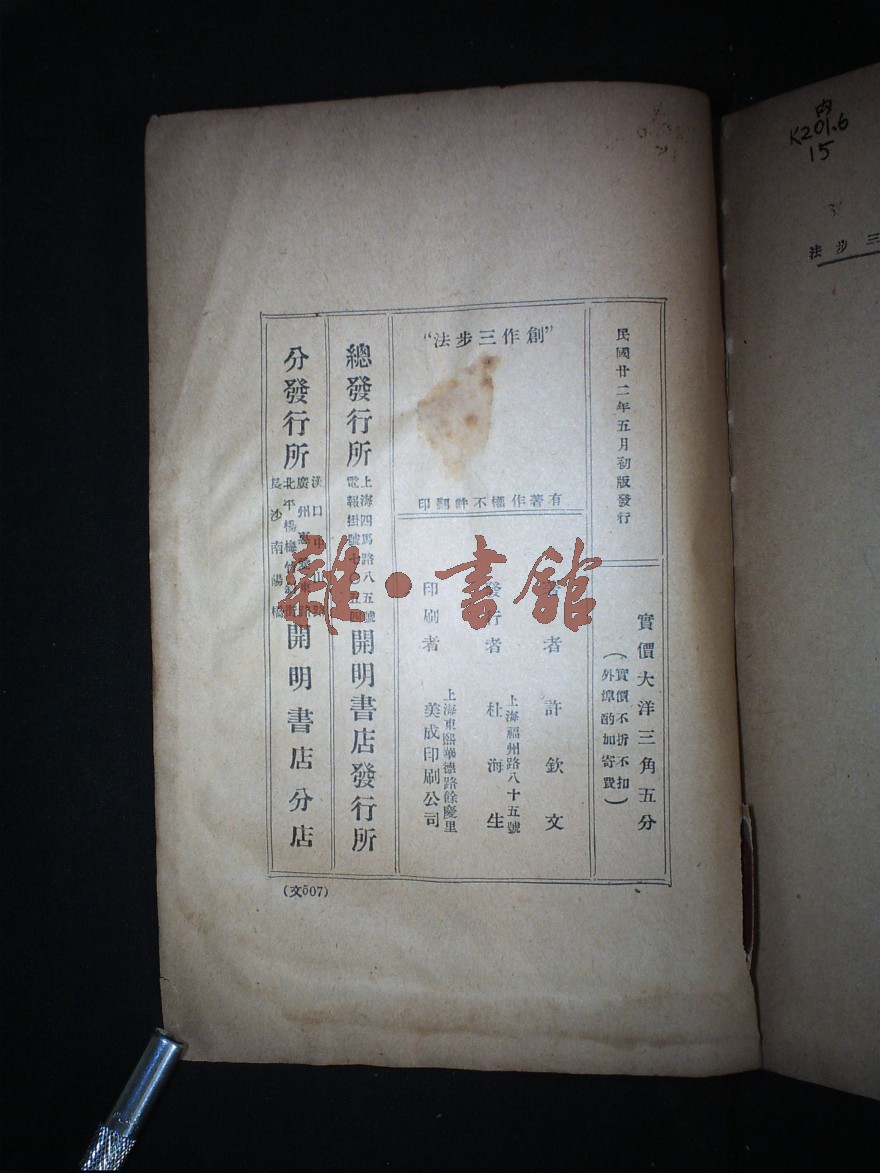 民國廿二年五月初版發行
實價大洋三角五分
(實價不折不扣
外埠酌加寄費)
“創作三步法”
有著作權不許翻印
著者 許欽文
發行者 杜海生
上海福州路八十五號
印刷者 美成印刷公司
上海東熙華德路餘慶里
總發行所
上海四馬路八五號
電報掛號七〇五四
開明書店發行所
分發行所
漢口中山路
廣州惠愛東路
北平楊梅竹斜街
長沙南陽街
開明書店分店
(文507)
雜·書館
內
K201.6
15
三步法